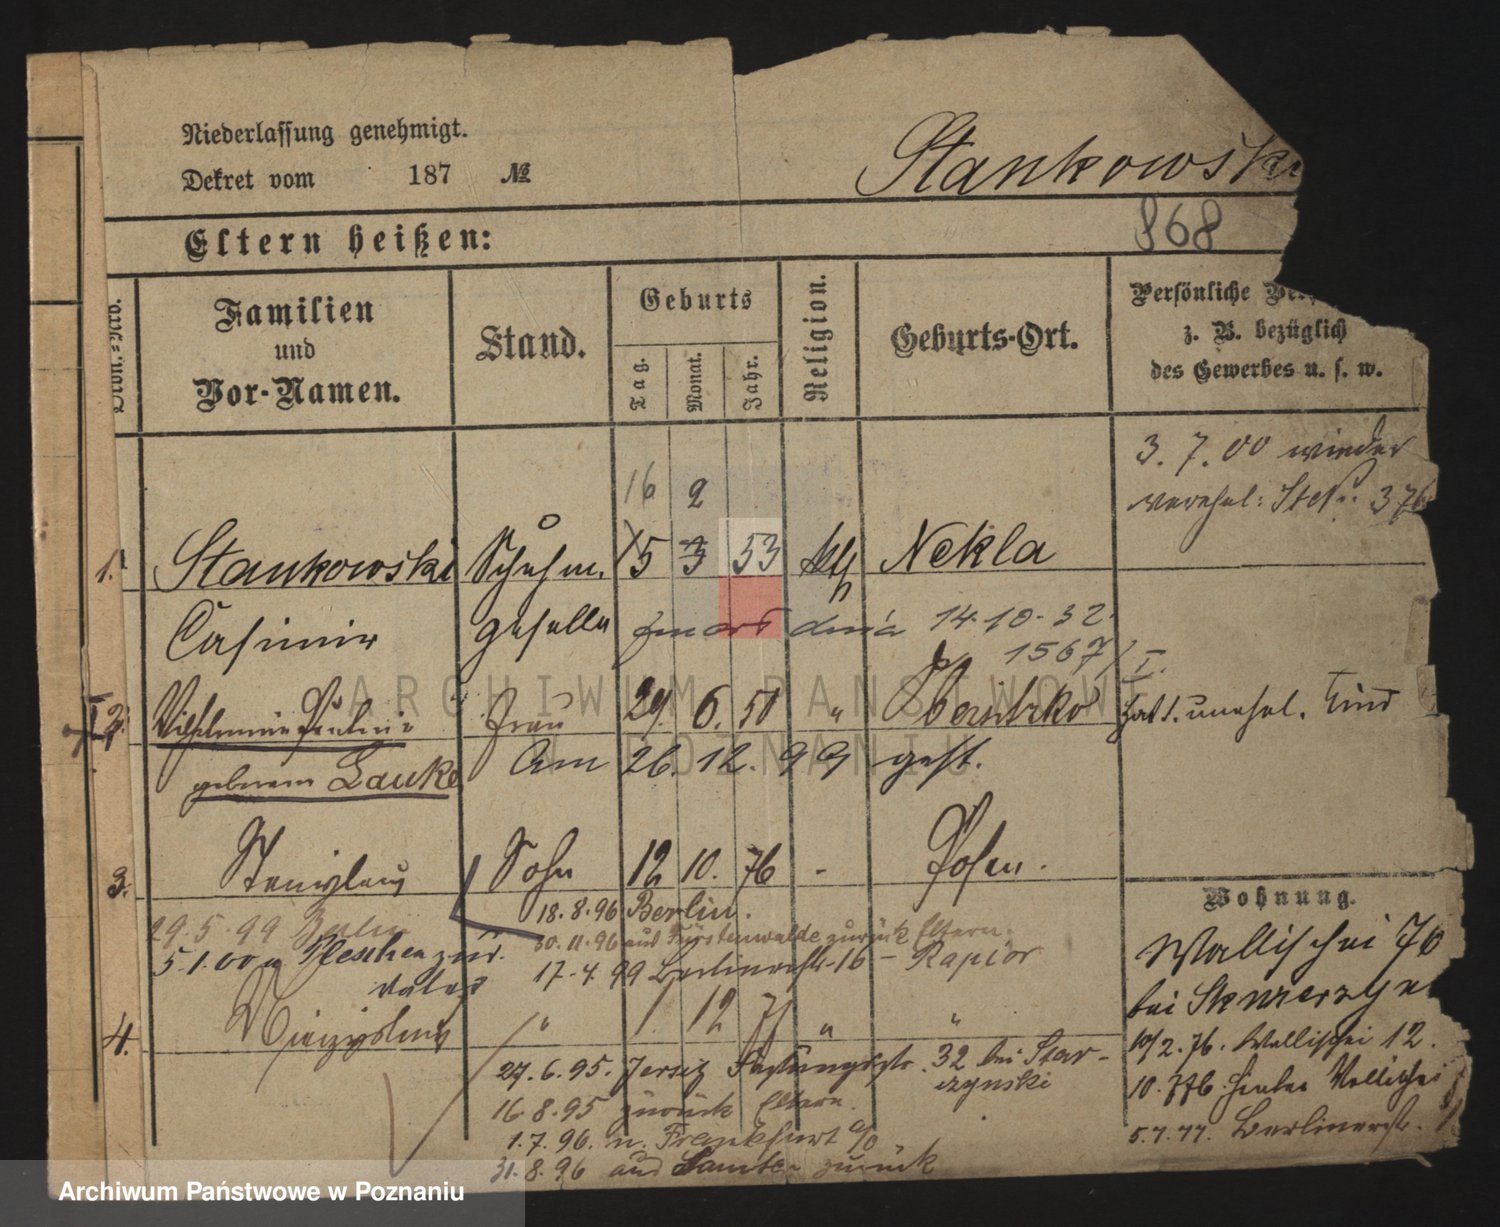 Niederlassung genehmigt.
Dekret vom 187 №
Stankowski
868
Eltern heißen:
Ordn.-Nro.
Familien
und
Vor-Namen.
Stand.
Geburts
Tag.
Monat.
Jahr.
Religion.
Geburts-Ort.
Persönliche
z. B. bezüglich
des Gewerbes u. s. w.
3. 7. 00 wieder
verehel:
16 2
1. Stankowski Schuhm. 15 3 53 kth Nekla
Casimir geselle
zmarł dnia 14.10.32.
1567/I.
2. Wilhelmine Pauline Frau 29. 6. 50 "
hat 1. unehel. Kind
geborene Lauke Am 26. 12. 99 gest.
3. Stanislaus Sohn 12 10. 76 - Posen.
18.8.96 Berlin.
29.5.99 Berlin
30.11.96 aus Fürstenwalde zurück Eltern.
5.1.00 n Pleschen zur.
17.4.99 Berlinerstr. 16 - Rapior
4. Miezislaus " 1. 12 " "
27.6.95. Jersitz 32 bei Star-
czynski
16.8.95 zurück Eltern.
1.7.96. n. Frankfurt a/O
31.8.96 aus Samter zurück
Wohnung.
Wallischei 76
bei
10/2.76. Wallischei 12.
10.7.76. Hinter Wallischei
5.7.77. Berlinerstr.
ARCHIWUM PAŃSTWOWE
W POZNANIU
Archiwum Państwowe w Poznaniu